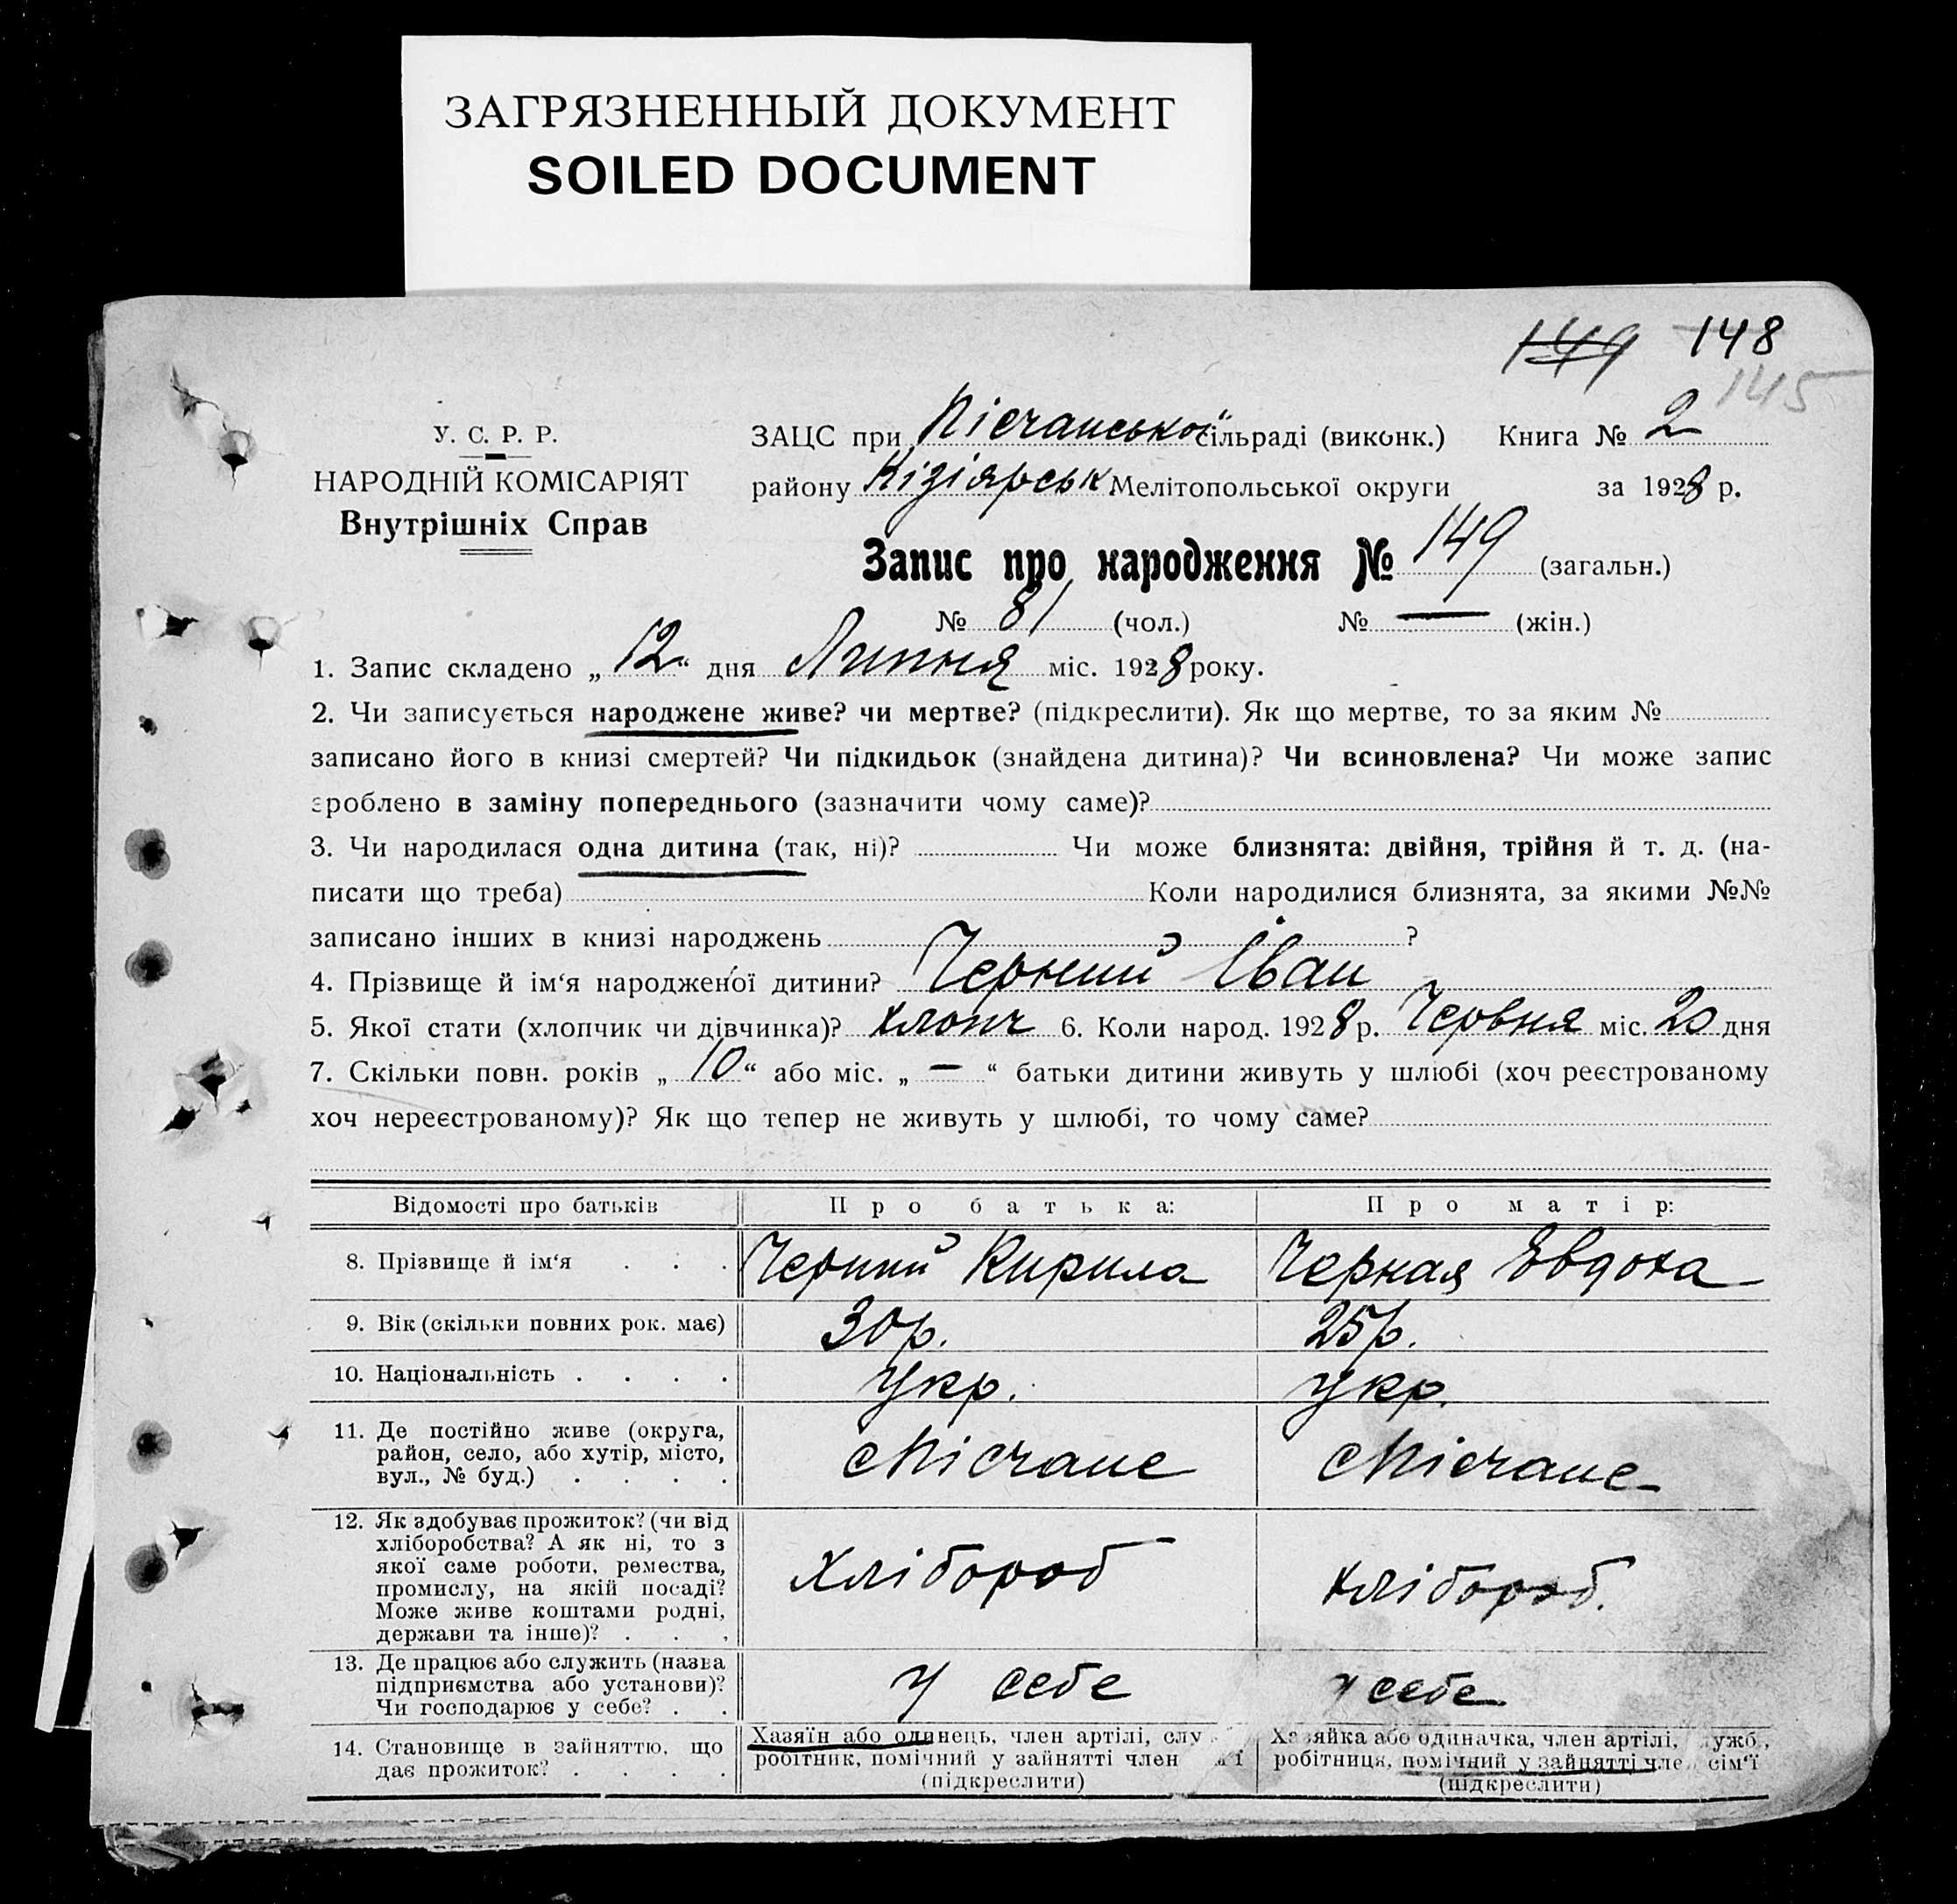 ЗАГРЯЗНЕННЫЙ ДОКУМЕНТ
SOILED DOCUMENT
149 148
145
У. С. Р. Р.
НАРОДНІЙ КОМІСАРІЯТ
Внутрішніх Справ
ЗАЦС при Пісчанської сільраді (виконк.) Книга № 2
району Кізіярськ Мелітопольської округи за 1928 р.
Запис про народження № 149 (загальн.)
№ 81 (чол.) № — (жін.)
1. Запис складено „ 12 “ дня Липня міс. 1928 року.
2. Чи записується народжене живе? чи мертве? (підкреслити). Як що мертве, то за яким №
записано його в книзі смертей? Чи підкидьок (знайдена дитина)? Чи всиновлена? Чи може запис
зроблено в заміну попереднього (зазначити чому саме)?
3. Чи народилася одна дитина (так, ні)? Чи може близнята: двійня, трійня й т. д. (на-
писати що треба) Коли народилися близнята, за якими №№
записано інших в книзі народжень ?
4. Прізвище й ім‘я народженої дитини? Черний Іван
5. Якої стати (хлопчик чи дівчинка)? хлопч 6. Коли народ. 1928 р. Червня міс. 20 дня
7. Скільки повн. років „ 10 “ або міс. „ — “ батьки дитини живуть у шлюбі (хоч реєстрованому
хоч нереєстрованому)? Як що тепер не живуть у шлюбі, то чому саме?
Відомості про батьків Про батька: Про матір:
8. Прізвище й ім‘я . . . Черний Кирила Черная Евдоха
9. Вік (скільки повних рок. має) 30 р. 25 р.
10. Національність . . . . Укр. Укр.
11. Де постійно живе (округа,
район, село, або хутір, місто,
вул., № буд.) . . . .
с Пісчане с Пісчане
12. Як здобуває прожиток? (чи від
хліборобства? А як ні, то з
якої саме роботи, ремества,
промислу, на якій посаді?
Може живе коштами родні,
держави та інше)? . . .
Хлібороб хлібороб.
13. Де працює або служить (назва
підприємства або установи)?
Чи господарює у себе? . .
у себе у себе
14. Становище в зайняттю, що
дає прожиток? . . . .
Хазяїн або одинець, член артілі, слу
робітник, помічний у зайнятті член
(підкреслити)
Хазяйка або одиначка, член артілі, ужб.,
робітниця, помічний у зайнятті чле сім‘ї
(підкреслити)